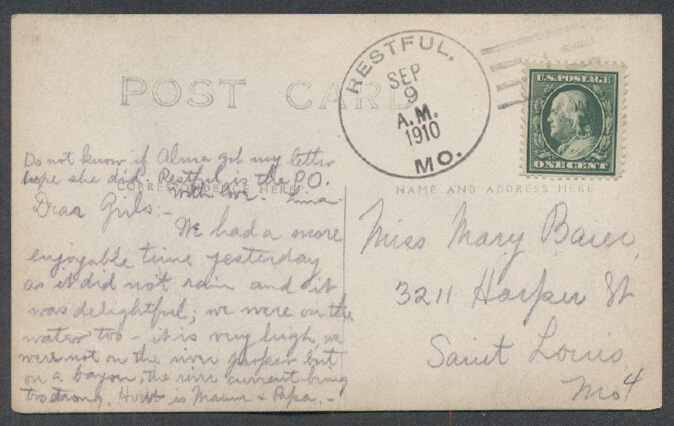 POST CARD
RESTFUL.
SEP
9
A.M.
1910
MO.
U.S. POSTAGE
ONE CENT
Do not know if Alma got my letter
hope she did. Restful is the P.O.
With love.
CORRESPONDENCE HERE
NAME AND ADDRESS HERE
Dear Girls:-
We had a more
enjoyable time yesterday
as it did not rain and it
was delightful; we were on the
water too - it is very high, we
were not on the river proper but
on a bayou, the river current being
too strong. How is Mama & Papa. -
Miss Mary Baier,
3211 Harper St
Saint Louis,
Mo
4